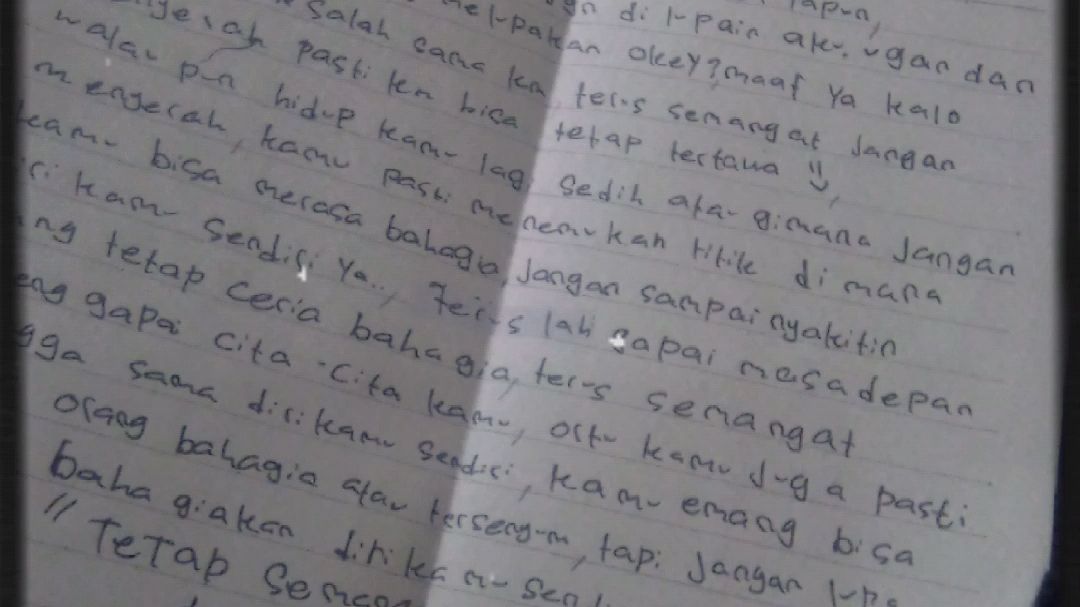 dilupain aku, ugan dan
melupakan okey? maaf ya kalo
salah sama km, terus semangat Jangan
pasti km bisa tetap tertawa
walau pun hidup kamu lagi sedih atau gimana Jangan
menyerah, kamu pasti menemukan titik di mana
kamu bisa merasa bahagia, Jangan sampai nyakitin
kamu sendiri ya.., Terus lah gapai masadepan
tetap ceria bahagia, terus semangat
gapai cita-cita kamu, ortu kamu juga pasti
sama diri kamu sendiri, kamu emang bisa
orang bahagia atau tersengum, tapi Jangan
bahagiakan diri kamu
// TeTap